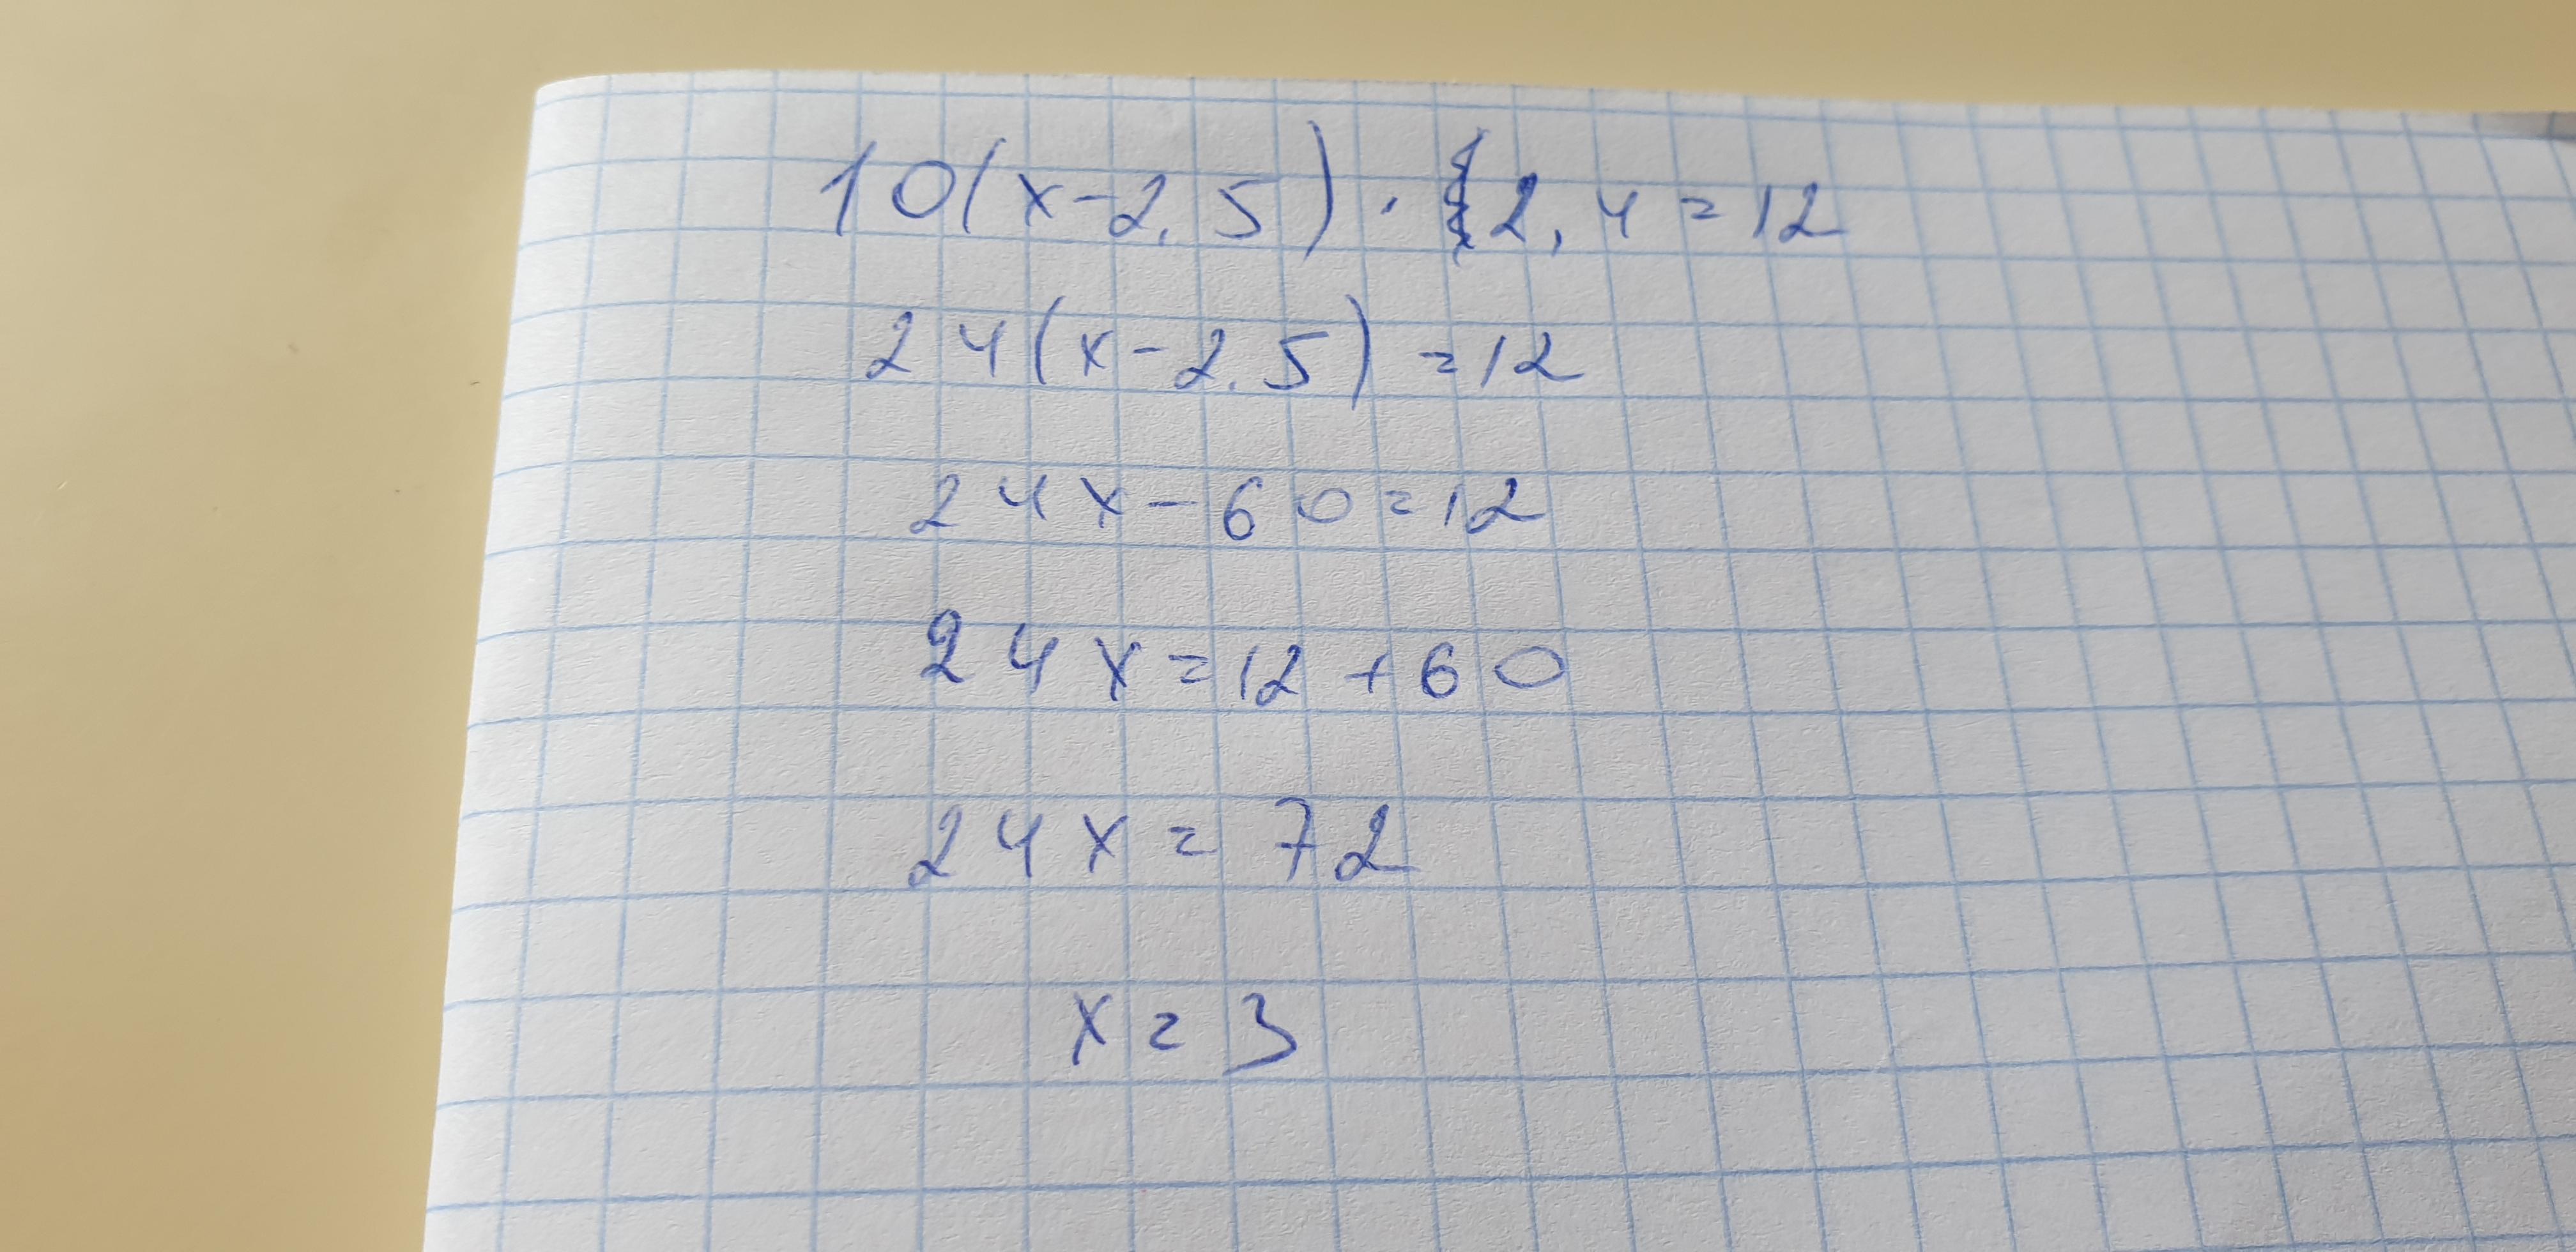 10(x-2.5)·2,4=12
24(x-2.5)=12
24x-60=12
24x=12+60
24x=72
x=3